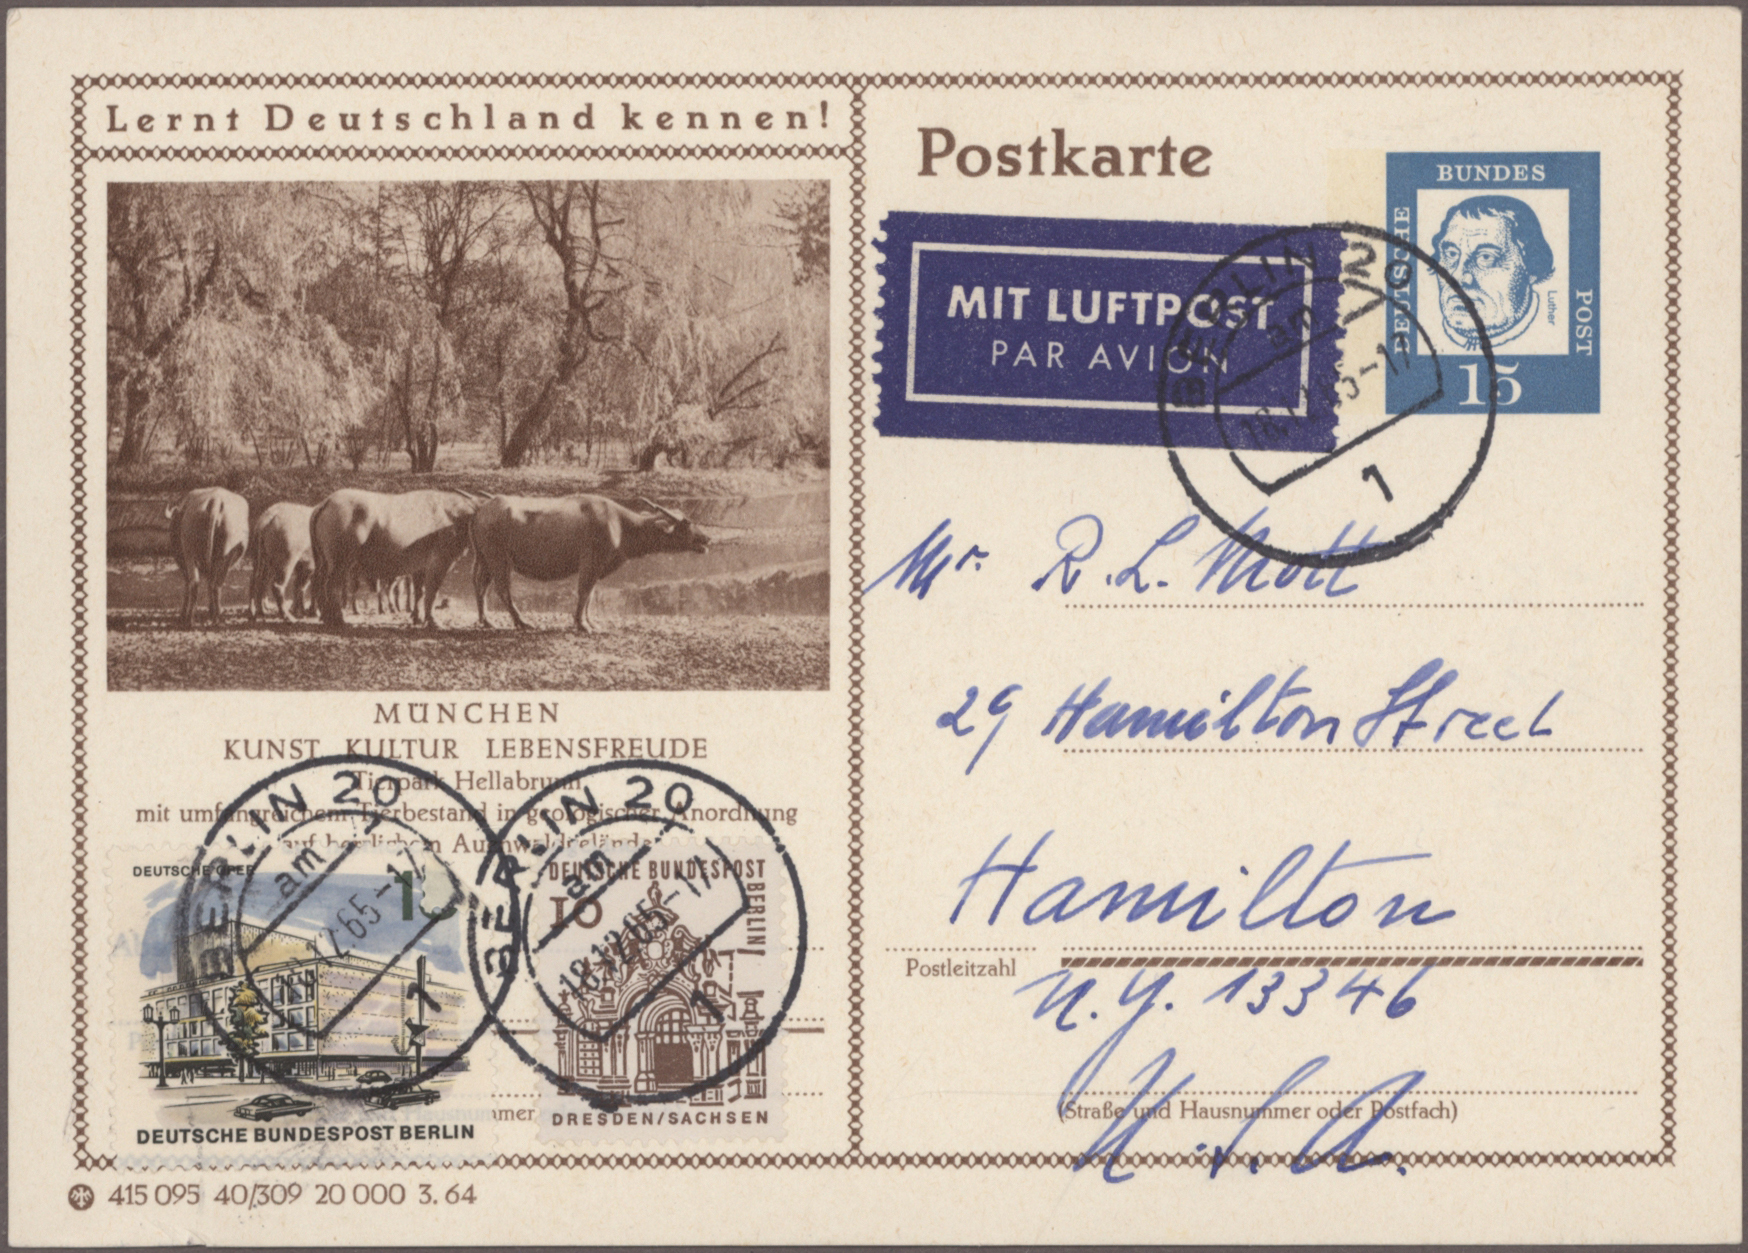 Lernt Deutschland kennen!
MÜNCHEN
KUNST KULTUR LEBENSFREUDE
Tierpark Hellabrunn
mit umfangreichem Tierbestand in geologischer Anordnung
auf herrlichem Auenwaldgelände
DEUTSCHE OPER
DEUTSCHE BUNDESPOST BERLIN
BERLIN 20
am
12.65-17
1
DEUTSCHE BUNDESPOST
BERLIN
10
DRESDEN/SACHSEN
BERLIN 20
am
18.12.65-17
1
415 095 40/309 20 000 3.64
Postkarte
MIT LUFTPOST
PAR AVION
DEUTSCHE
BUNDES
POST
Luther
15
BERLIN 20
am
1
Mr. R. L. Mott
29 Hamilton Street
Hamilton
Postleitzahl
N.Y. 13346
(Straße und Hausnummer oder Postfach)
U.S.A.